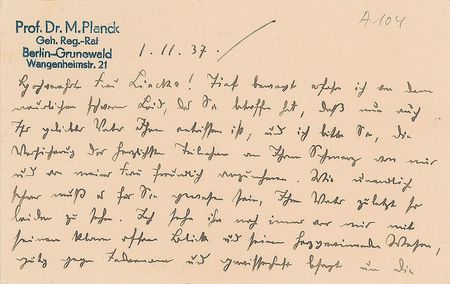 Prof. Dr. M. Planck
Geh. Reg.-Rat
Berlin-Grunewald
Wangenheimstr. 21
A 104
1.11.37.
Hochverehrte Frau ! Tief bewegt erfahre ich von dem
neuerlichen schweren Leid, das Sie betroffen hat, daß nun auch
Ihr geliebter Vater Ihnen entrissen ist, und ich bitte Sie, die
Versicherung der herzlichsten Teilnahme an Ihrem Schmerz von mir
und von meiner Frau freundlich anzunehmen. Wie unendlich
schwer muß es für Sie gewesen sein, Ihren Vater zuletzt so
leiden zu sehen. Ich sehe ihn noch immer vor mir mit
seinem klaren offenen Blick und seinem herzgewinnenden Wesen,
gütig gegen Jedermann und gewissenhaft besorgt um die